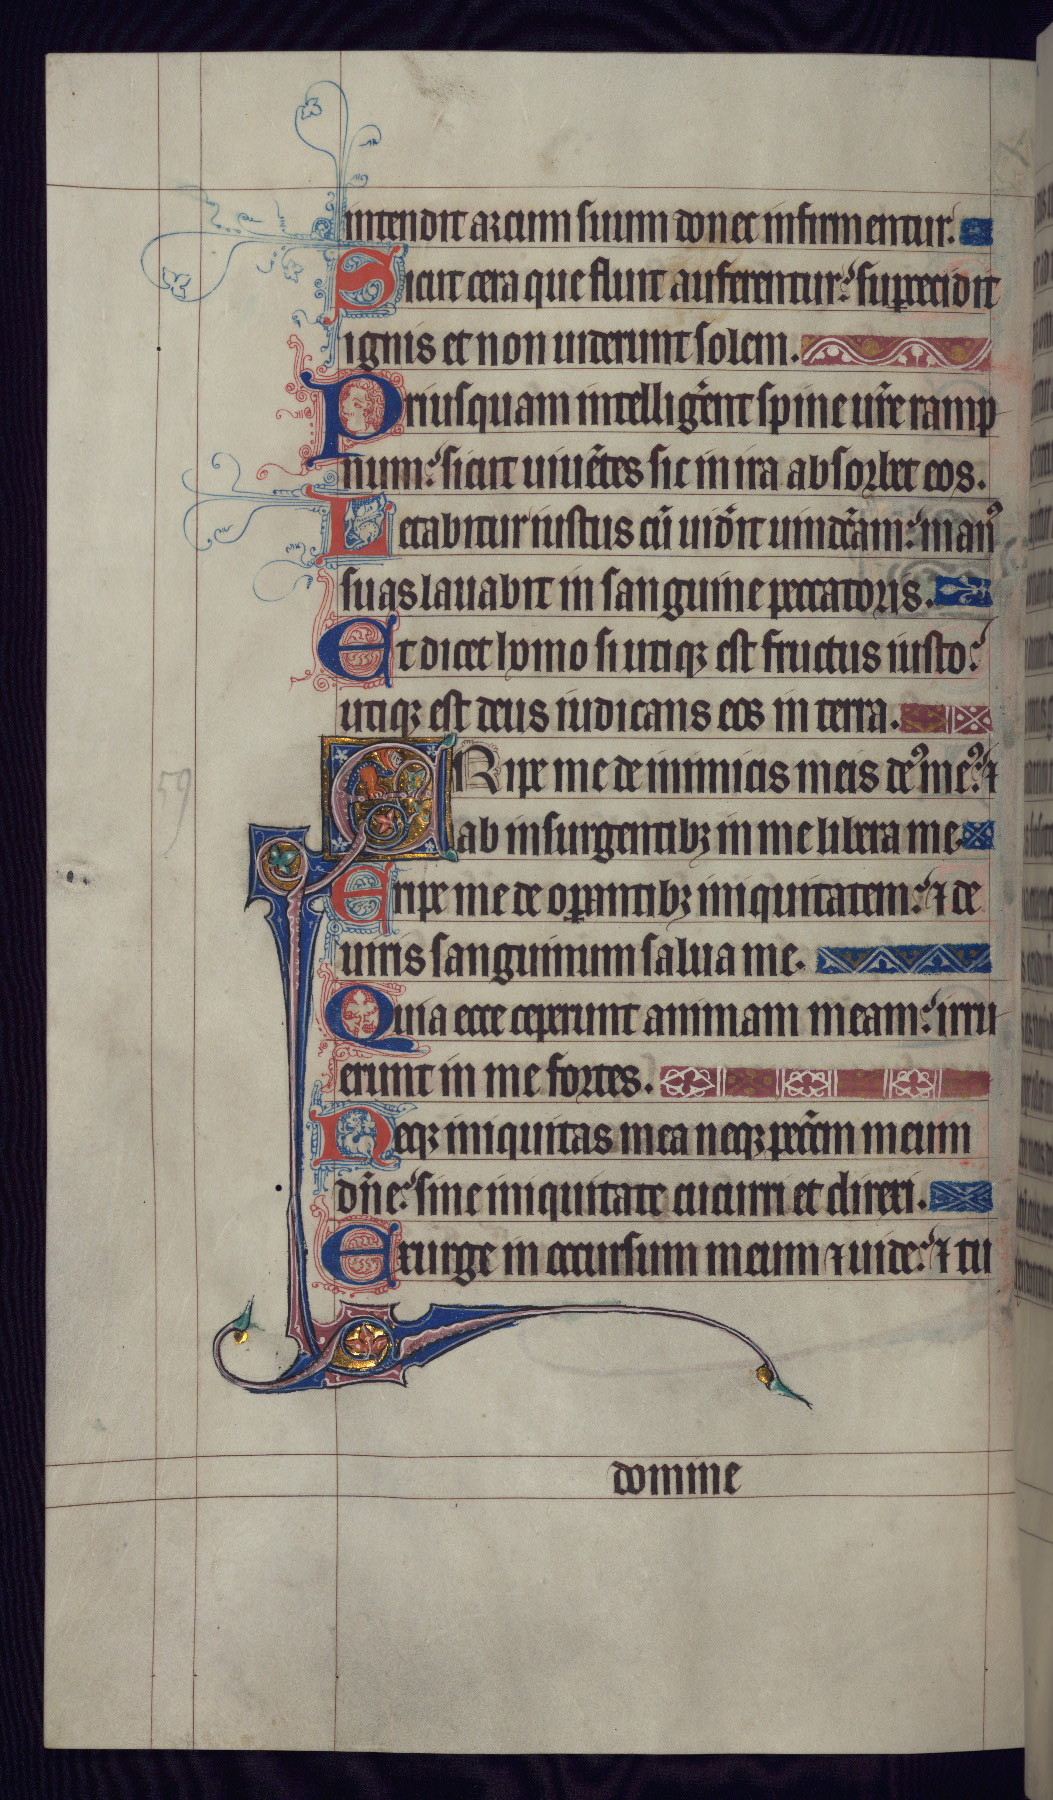 intendit arcum suum donec infirmentur.
Sicut cera que fluit auferentur: sup̱cecidit
ignis et non uiderunt solem.
Priusquam intelliger̄ent spine ur̄e ramp
num: sicut uiuētes sic in ira absorbet eos.
Letabitur iustus cū uid̄it uindc̄am: manꝰ
suas lauabit in sanguine peccatoris.
Et dicet homo si utiqꝫ est fructus iusto:
utiqꝫ est deus iudicans eos in terra.
ERipe me de inimicis meis deꝰ meꝰ: ⁊
ab insurgentibꝫ in me libera me.
Eripe me de oꝑantibꝫ iniquitatem: ⁊ de
uiris sanguinum salua me.
Quia ecce ceperunt animam meam: irru
erunt in me fortes.
Neqꝫ iniquitas mea neqꝫ pecc̄m meum
dn̄e: sine iniquitate cucurri et direxi.
Exurge in occursum meum ⁊ uide: ⁊ tu
domine
59